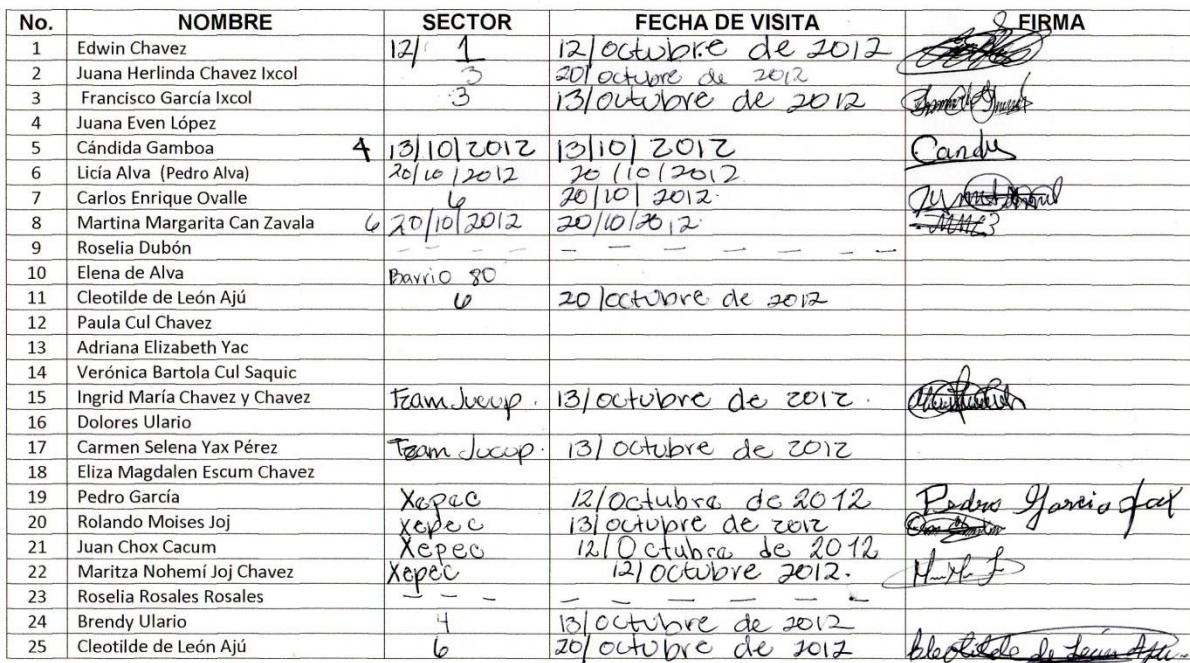 No. NOMBRE SECTOR FECHA DE VISITA FIRMA
1 Edwin Chavez 12/ 1 12/octubre de 2012
2 Juana Herlinda Chavez Ixcol 3 20/octubre de 2012
3 Francisco García Ixcol 3 13/outubre de 2012
4 Juana Even López
5 Cándida Gamboa 4 13/10/2012 13/10/2012 Candy
6 Licía Alva (Pedro Alva) 20/10/2012 20/10/2012
7 Carlos Enrique Ovalle 6 20/10/2012.
8 Martina Margarita Can Zavala 6 20/10/2012 20/10/2012.
9 Roselia Dubón
10 Elena de Alva Barrio 80
11 Cleotilde de León Ajú 6 20/octubre de 2012
12 Paula Cul Chavez
13 Adriana Elizabeth Yac
14 Verónica Bartola Cul Saquic
15 Ingrid María Chavez y Chavez 13/octubre de 2012.
16 Dolores Ulario
17 Carmen Selena Yax Pérez 13/octubre de 2012
18 Eliza Magdalen Escum Chavez
19 Pedro García Xepec 12/Octubre de 2012 Pedro Garcia
20 Rolando Moises Joj Xepec 13/octubre de 2012
21 Juan Chox Cacum Xepec 12/Octubre de 2012
22 Maritza Nohemí Joj Chavez Xepec 12/octubre 2012.
23 Roselia Rosales Rosales
24 Brendy Ulario 4 13/octubre de 2012
25 Cleotilde de León Ajú 6 20/octubre de 2012 Cleotilde de León Ajú.